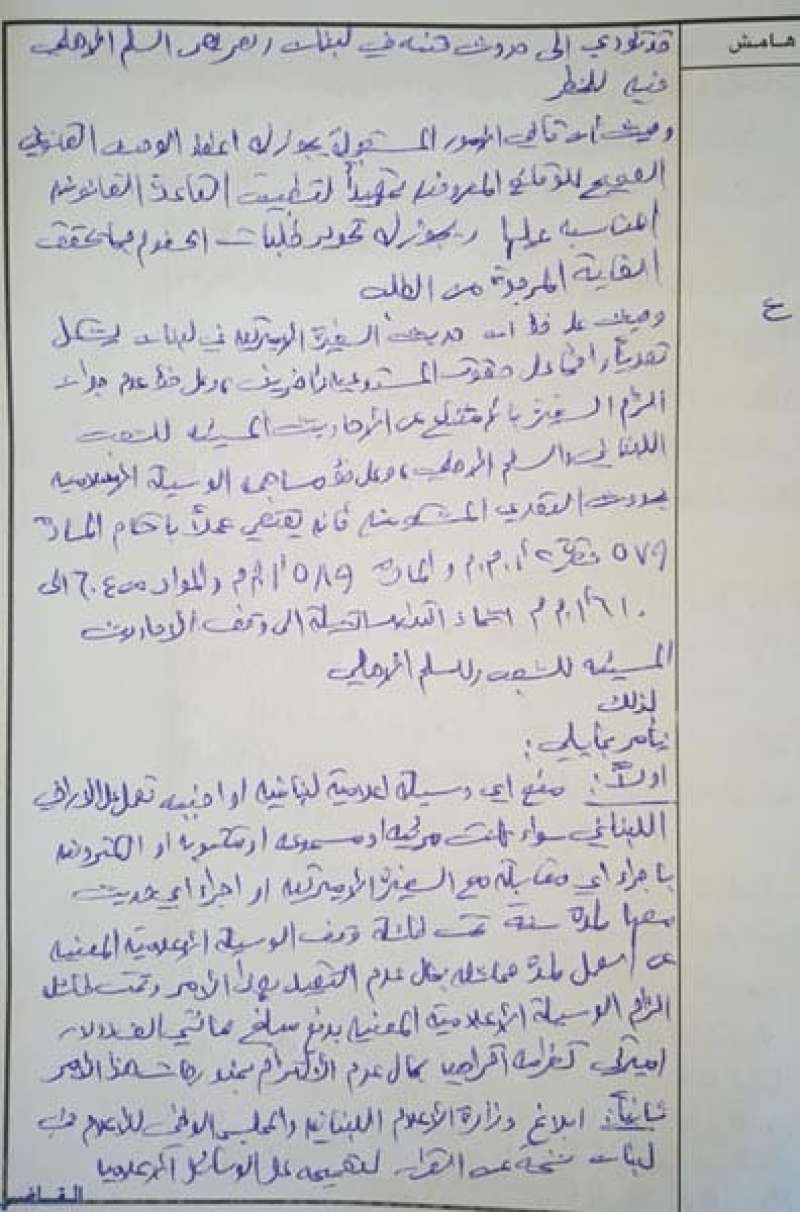 هامش
قد تؤدي الى حدوث فتنه في لبنان وتعريض السلم الاهلي
فيه للخطر
وحيث ان قاضي الامور المستعجلة يجوز له اعطاء الوصف القانوني
الصحيح للوقائع المعروضه تمهيداً لتطبيق القاعدة القانونيه
المناسبه عليها ويجوز له تحوير طلبات الخصوم بما يحقق
الغاية المرجوة من الطلب
ع
وحيث على ضوء ان حديث السفيرة الاميركيه في لبنان يشكل
تعدياً واضحاً على حقوق المستدعيه وعلى ضوء عدم جواز
الزام السفيرة بالامتناع عن الاحاديث المسيئه للشعب
اللبناني والسلم الاهلي، وعلى ضوء مساهمة الوسيلة الاعلامية
بحدوث التعدي المشكو منه فانه يقتضي عملاً باحكام المادة
٥٧٩ فقرة ٢ أ.م.م والمادة ٥٨٩ أ.م.م والمواد من ٦٠٤ الى
٦١٠ أ.م.م اتخاذ التدابير الايلة الى وقف الاحاديث
المسيئه للشعب وللسلم الاهلي
لذلك
نأمر بما يلي:
اولاً: منع اي وسيلة اعلامية لبنانيه او اجنبيه تعمل على الاراضي
اللبناني سواء كانت مرئيه او مسموعه او مكتوبه او الكترونيه
باجراء اي مقابلة مع السفيرة الاميركيه او اجراء اي حديث
معها لمدة سنة تحت طائلة وقف الوسيلة الاعلامية المعنيه
عن العمل لمدة مماثله بحال عدم التقيد بهذا الامر وتحت طائلة
الزام الوسيلة الاعلامية المعنيه بدفع مبلغ مائتي الف دولار
اميركي كغرامه اكراهيه بحال عدم الالتزام بمندرجات هذا الامر
ثانياً: ابلاغ وزارة الاعلام اللبنانيه والمجلس الوطني للاعلام في
لبنان نسخة عن القرار لتعميمه على الوسائل الاعلامية
القاضي